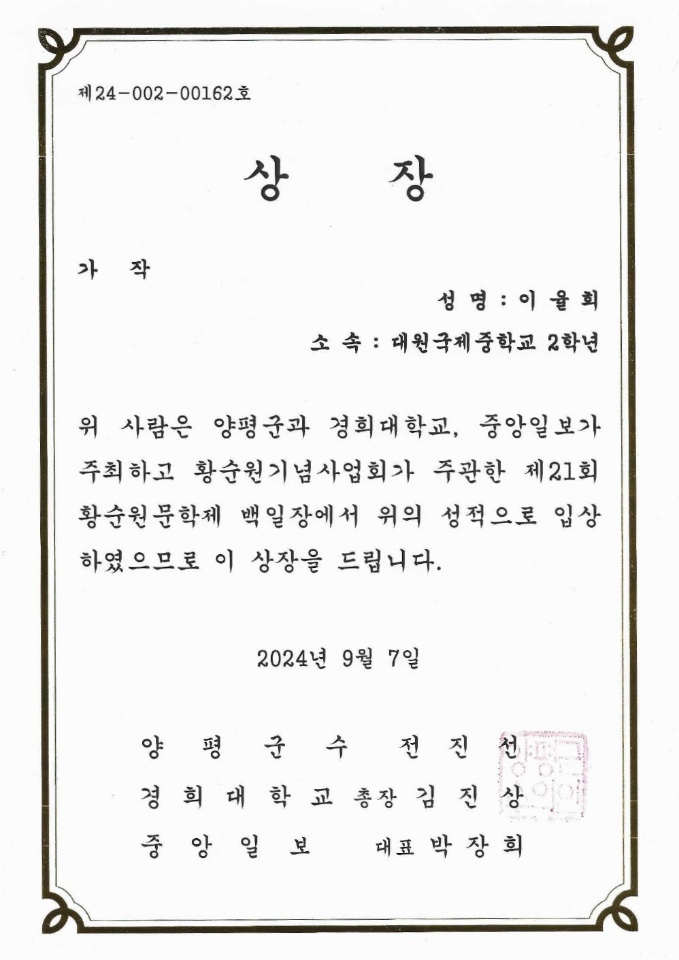 제24-002-00162호
상 장
가 작
성 명 : 이 율 희
소 속 : 대원국제중학교 2학년
위 사람은 양평군과 경희대학교, 중앙일보가
주최하고 황순원기념사업회가 주관한 제21회
황순원문학제 백일장에서 위의 성적으로 입상
하였으므로 이 상장을 드립니다.
2024년 9월 7일
양 평 군 수 전 진 선
경 희 대 학 교 총장 김 진 상
중 앙 일 보 대표 박 장 희